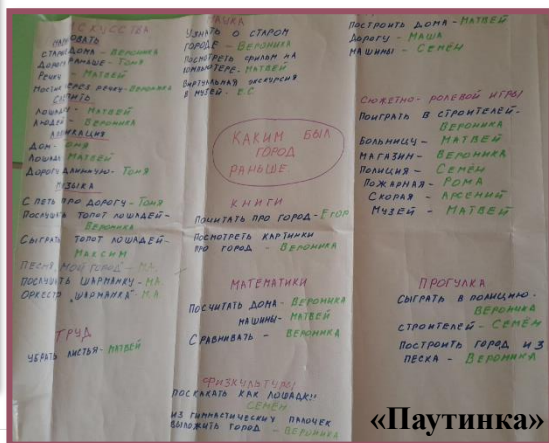 ИСКУССТВА
РИСОВАТЬ
СТАРЫЕ ДОМА - ВЕРОНИКА
ДОРОГУ РАНЬШЕ - ТОНЯ
РЕЧКУ - МАТВЕЙ
МОСТИК ЧЕРЕЗ РЕЧКУ - ВЕРОНИКА
ЛЕПИТЬ
ЛОШАДЕЙ - МАТВЕЙ
ЛЮДЕЙ - ВЕРОНИКА
АППЛИКАЦИЯ
ДОМ - ТОНЯ
ЛОШАДЬ МАТВЕЙ
ДОРОГУ ДЛИННУЮ - ТОНЯ
МУЗЫКА
СПЕТЬ ПРО ДОРОГУ - ТОНЯ
ПОСЛУШАТЬ ТОПОТ ЛОШАДЕЙ -
ВЕРОНИКА
СЫГРАТЬ ТОПОТ ЛОШАДЕЙ -
МАКСИМ
ПЕСНЯ "МОЙ ГОРОД" - М.А.
ПОСЛУШАТЬ ШАРМАНКУ - М.А.
ОРКЕСТР "ШАРМАНКА" - М.А.
ТРУД
УБРАТЬ ЛИСТЬЯ - МАТВЕЙ
НАУКА
УЗНАТЬ О СТАРОМ
ГОРОДЕ - ВЕРОНИКА
ПОСМОТРЕТЬ ФИЛЬМ НА
КОМПЬЮТЕРЕ - МАТВЕЙ
ВИРТУАЛЬНАЯ ЭКСКУРСИЯ
В МУЗЕЙ - Е.С.
КАКИМ БЫЛ
ГОРОД
РАНЬШЕ.
КНИГИ
ПОЧИТАТЬ ПРО ГОРОД - ЕГОР
ПОСМОТРЕТЬ КАРТИНКИ
ПРО ГОРОД - ВЕРОНИКА
МАТЕМАТИКИ
ПОСЧИТАТЬ ДОМА - ВЕРОНИКА
МАШИНЫ - МАТВЕЙ
СРАВНИВАТЬ - ВЕРОНИКА
ФИЗКУЛЬТУРЫ
ПОСКАКАТЬ КАК ЛОШАДКИ
СЕМЁН
ИЗ ГИМНАСТИЧЕСКИХ ПАЛОЧЕК
ВЫЛОЖИТЬ ГОРОД - ВЕРОНИКА
ПОСТРОИТЬ ДОМА - МАТВЕЙ
ДОРОГУ - МАША
МАШИНЫ - СЕМЁН
СЮЖЕТНО - РОЛЕВОЙ ИГРЫ
ПОИГРАТЬ В СТРОИТЕЛЕЙ -
ВЕРОНИКА
БОЛЬНИЦУ - МАТВЕЙ
МАГАЗИН - ВЕРОНИКА
ПОЛИЦИЯ - СЕМЁН
ПОЖАРНАЯ - РОМА
СКОРАЯ - АРСЕНИЙ
МУЗЕЙ - МАТВЕЙ
ПРОГУЛКА
СЫГРАТЬ В ПОЛИЦИЮ -
ВЕРОНИКА
СТРОИТЕЛЕЙ - СЕМЁН
ПОСТРОИТЬ ГОРОД ИЗ
ПЕСКА - ВЕРОНИКА
«Паутинка»